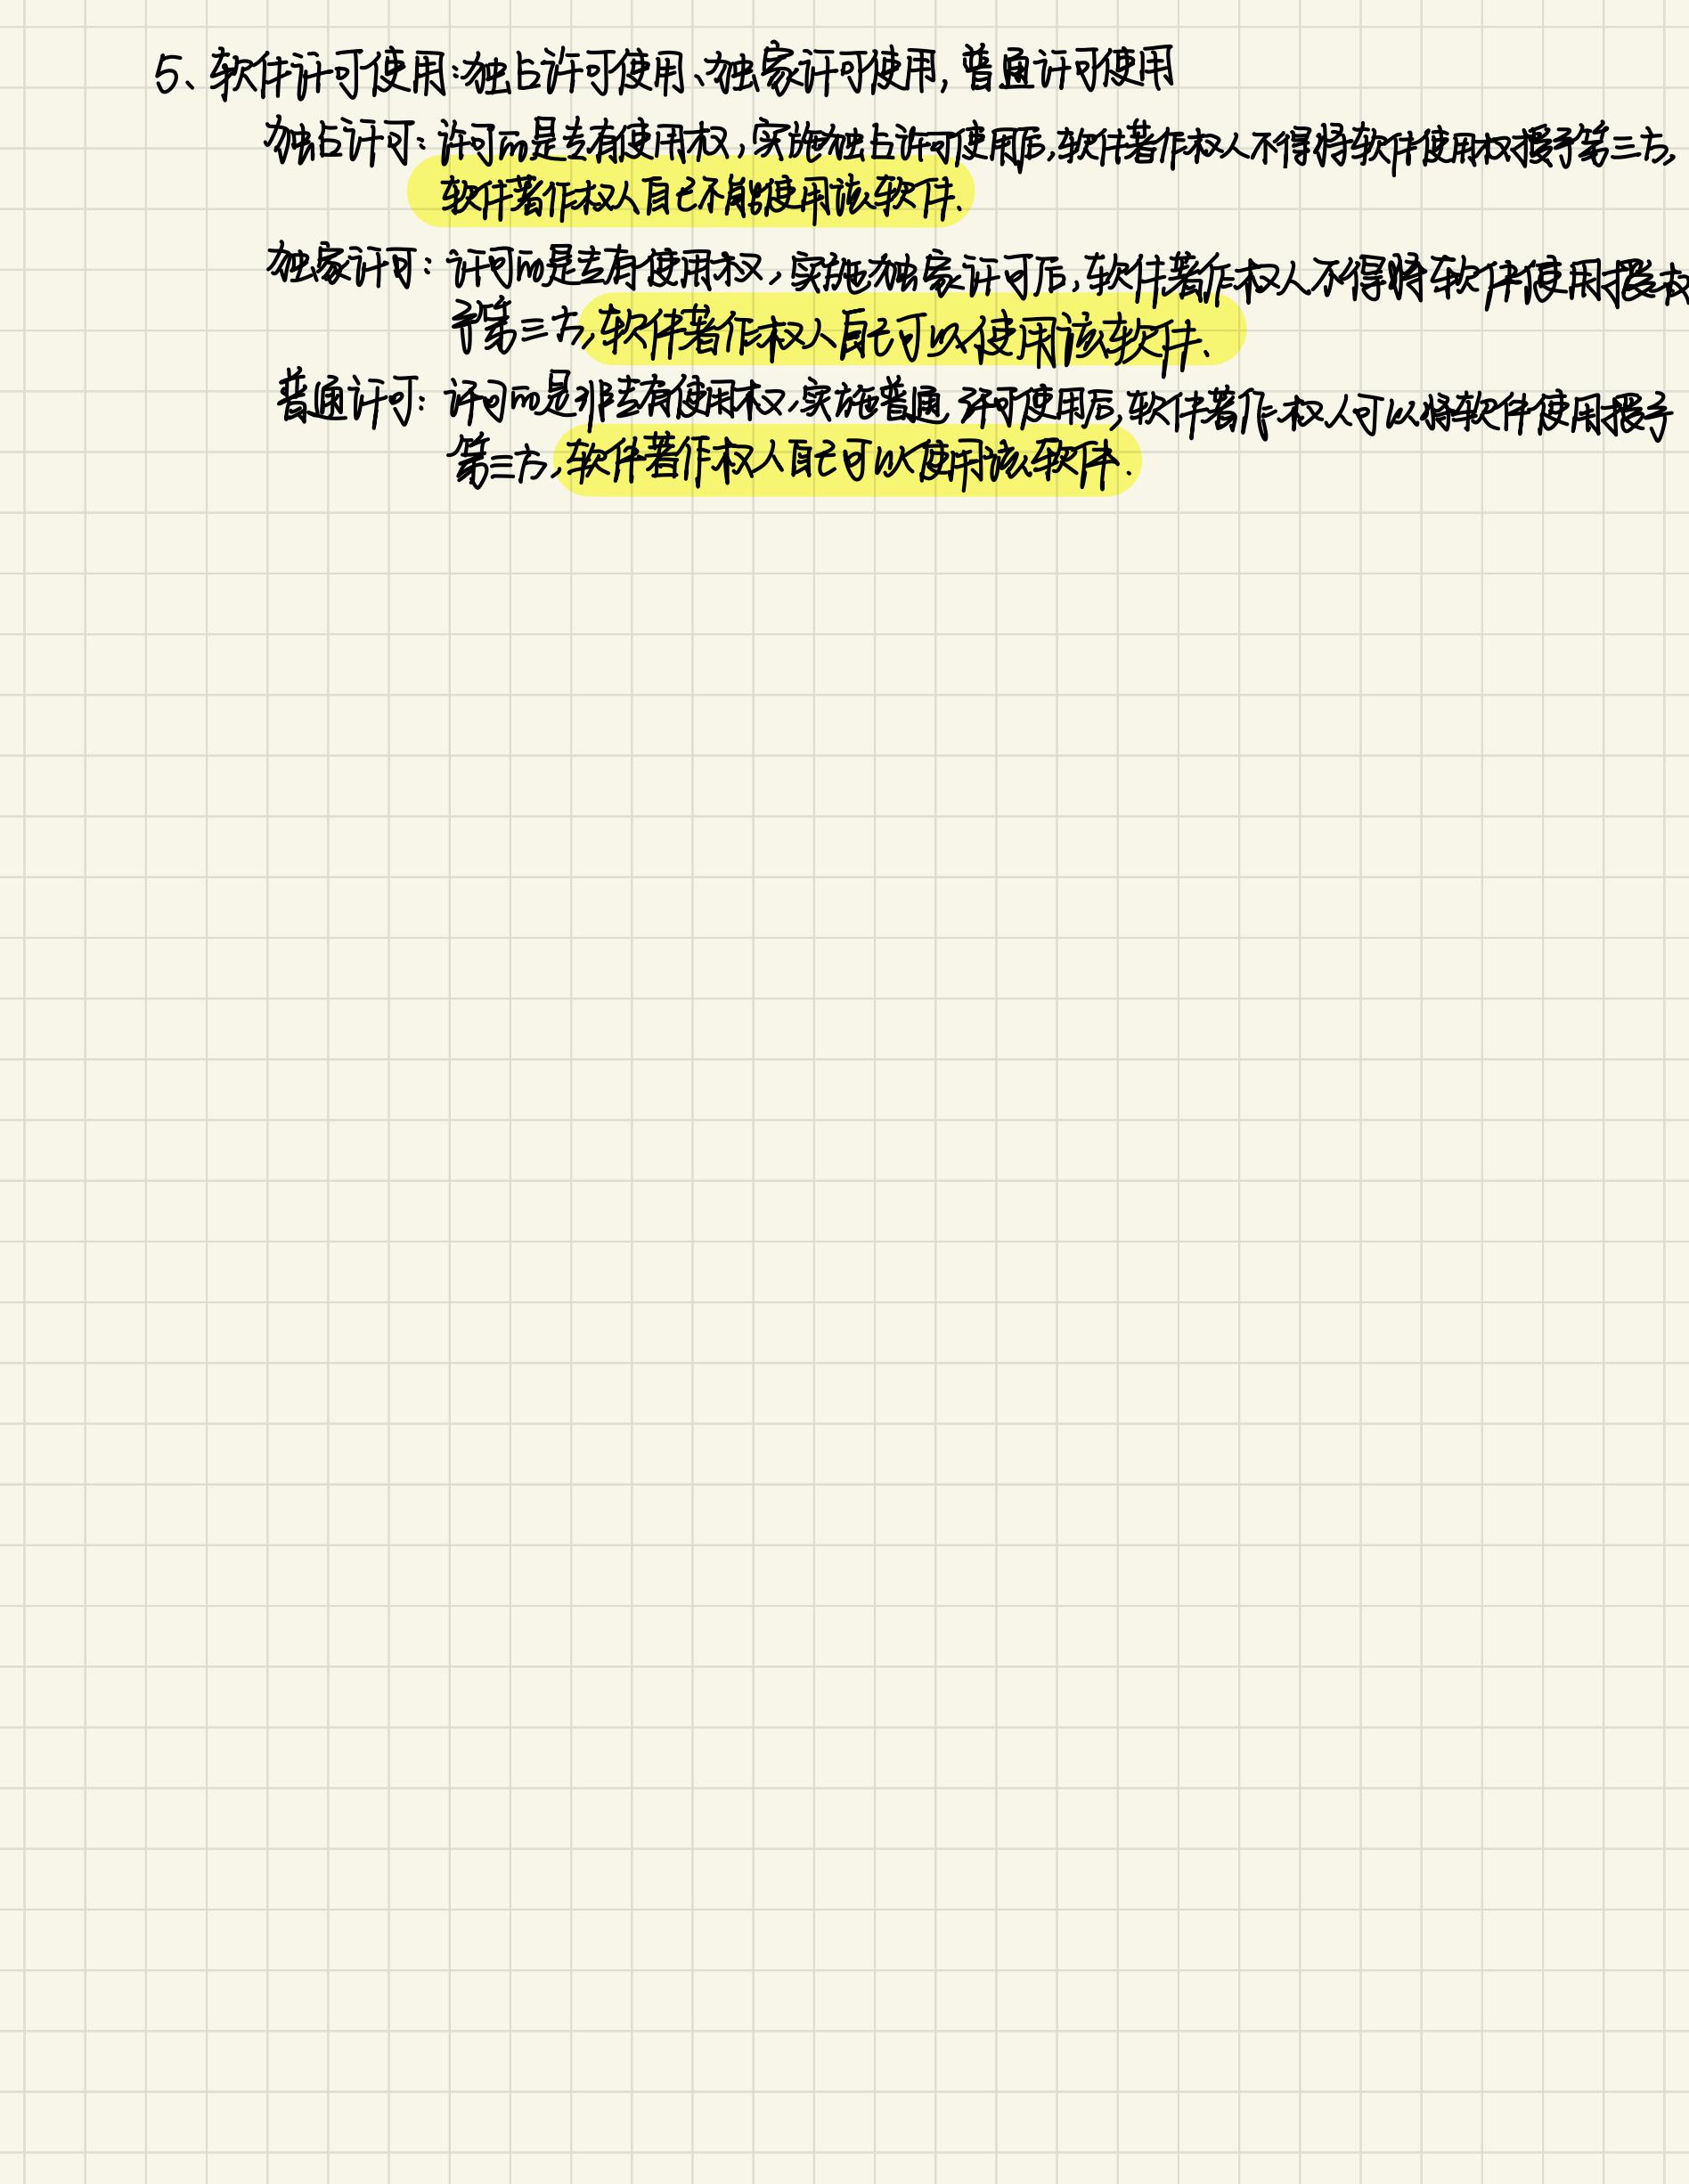 5、软件许可使用：独占许可使用、独家许可使用，普通许可使用
独占许可：许可的是专有使用权，实施独占许可使用后，软件著作权人不得将软件使用权授予第三方，
软件著作权人自己不能使用该软件.
独家许可：许可的是专有使用权，实施独家许可后，软件著作权人不得将软件使用授权
予第三方，软件著作权人自己可以使用该软件.
普通许可：许可的是非专有使用权，实施普通许可使用后，软件著作权人可以将软件使用授予
第三方，软件著作权人自己可以使用该软件.